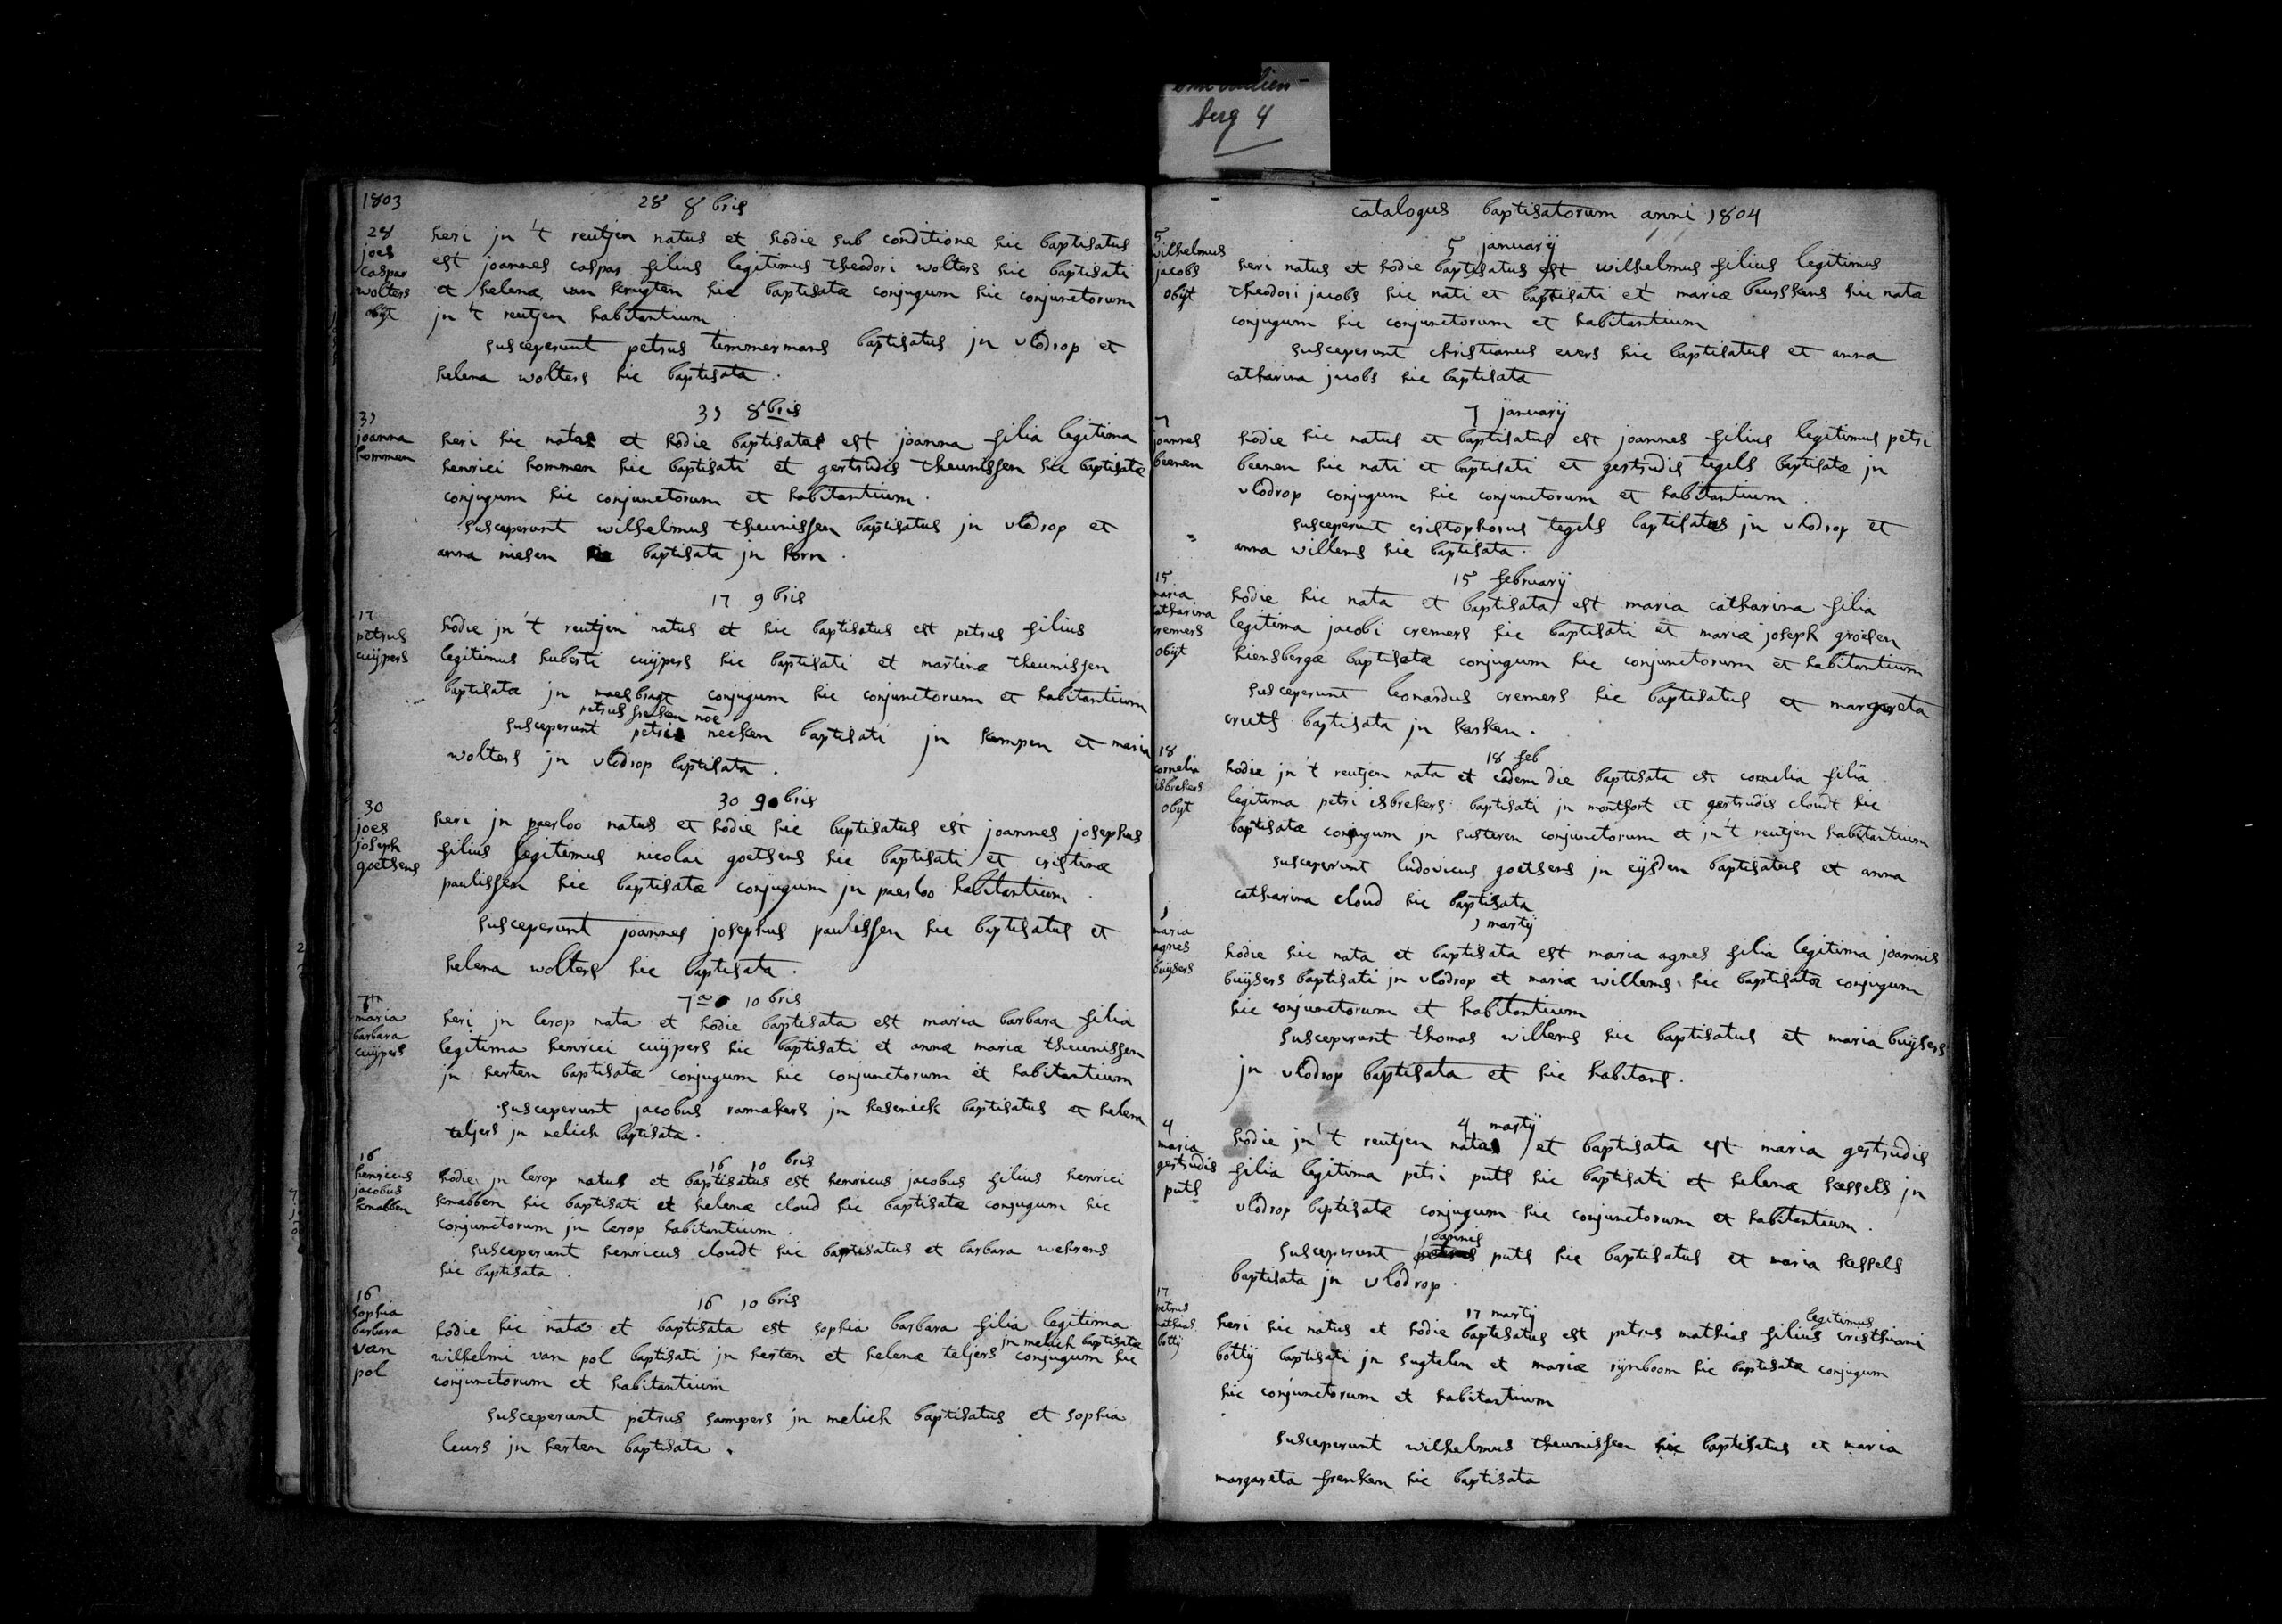 berg 4
1803
28 8bris
28
joes
caspar
wolters
obyt
heri jn 't reutjen natus et hodie sub conditione hic baptisatus
est joannes caspar filius legitimus theodori wolters hic baptisati
et helenæ van kruyten hic baptisatæ conjugum hic conjunctorum
jn 't reutjen habitantium
susceperunt petrus timmermans baptisatus jn vlodrop et
helena wolters hic baptisata.
31 8bris
31
joanna
hommen
heri hic nata et hodie baptisata est joanna filia legitima
henrici hommen hic baptisati et gertrudis theunissen hic baptisatæ
conjugum hic conjunctorum et habitantium.
susceperunt wilhelmus theunissen baptisatus jn vlodrop et
anna niesen baptisata jn horn.
17 9bris
17
petrus
cuÿpers
hodie jn 't reutjen natus et hic baptisatus est petrus filius
legitimus huberti cuÿpers hic baptisati et martinæ theunissen
baptisatæ jn maesbragt conjugum hic conjunctorum et habitantium
petrus noe
susceperunt petri necken baptisati jn kempen et maria
wolters jn vlodrop baptisata.
30 9bris
30
joes
joseph
goetsens
heri jn paerloo natus et hodie hic baptisatus est joannes josephus
filius legitimus nicolai goetsens hic baptisati et cristinæ
paulissen hic baptisatæ conjugum jn paerloo habitantium.
susceperunt joannes josephus paulissen hic baptisatus et
helena wolters hic baptisata.
7a 10bris
7
maria
barbara
cuÿpers
heri jn lerop nata et hodie baptisata est maria barbara filia
legitima henrici cuÿpers hic baptisati et annæ mariæ theunissen
jn herten baptisatæ conjugum hic conjunctorum et habitantium
susceperunt jacobus ramakers jn kesenich baptisatus et helena
teljers jn melich baptisata.
16 10 bris
16
henricus
jacobus
knabben
hodie jn lerop natus et baptisatus est henricus jacobus filius henrici
knabben hic baptisati et helenæ cloud hic baptisatæ conjugum hic
conjunctorum jn lerop habitantium.
susceperunt henricus cloudt hic baptisatus et barbara wehrens
hic baptisata.
16 10bris
16
sophia
barbara
van
pol
hodie hic nata et baptisata est sophia barbara filia legitima
jn melich baptisatæ
wilhelmi van pol baptisati jn herten et helenæ teljers conjugum hic
conjunctorum et habitantium
susceperunt petrus sampers jn melich baptisatus et sophia
leurs jn herten baptisata.
catalogus baptisatorum anni 1804
5 januarÿ
5
wilhelmus
jacobs
obyt
heri natus et hodie baptisatus est wilhelmus filius legitimus
theodori jacobs hic nati et baptisati et mariæ beurskens hic natæ
conjugum hic conjunctorum et habitantium
susceperunt christianus evers hic baptisatus et anna
catharina jacobs hic baptisata
7 januarÿ
7
joannes
beenen
hodie hic natus et baptisatus est joannes filius legitimus petri
beenen hic nati et baptisati et gertrudis tegels baptisatæ jn
vlodrop conjugum hic conjunctorum et habitantium.
susceperunt cristophorus tegels baptisatus jn vlodrop et
anna willems hic baptisata.
15 februarÿ
15
maria
catharina
cremers
obyt
hodie hic nata et baptisata est maria catharina filia
legitima jacobi cremers hic baptisati et mariæ joseph groesen
hiensbergæ baptisatæ conjugum hic conjunctorum et habitantium
susceperunt leonardus cremers hic baptisatus et margareta
cruts baptisata jn karken.
18 feb
18
cornelia
isbrekers
obyt
hodie jn 't reutjen nata et eadem die baptisata est cornelia filia
legitima petri isbrekers baptisati jn montfort et gertrudis cloudt hic
baptisatæ conjugum jn susteren conjunctorum et jn 't reutjen habitantium
susceperunt ludovicus goetsens jn eÿsden baptisatus et anna
catharina cloud hic baptisata
1 martÿ
1
maria
agnes
buÿsers
hodie hic nata et baptisata est maria agnes filia legitima joannis
buÿsers baptisati jn vlodrop et mariæ willems hic baptisatæ conjugum
hic conjunctorum et habitantium
susceperunt thomas willems hic baptisatus et maria buÿsers
jn vlodrop baptisata et hic habitans.
4 martÿ
4
maria
gertrudis
puts
hodie jn 't reutjen nata et baptisata est maria gertrudis
filia legitima petri puts hic baptisati et helenæ kessels jn
vlodrop baptisatæ conjugum hic conjunctorum et habitantium.
joannis
susceperunt petrus puts hic baptisatus et maria kessels
baptisata jn vlodrop.
17 martÿ
17
petrus
mathias
bottÿ
legitimus
heri hic natus et hodie baptisatus est petrus mathias filius cristhiani
bottÿ baptisati jn sugtelen et mariæ rijnboom hic baptisatæ conjugum
hic conjunctorum et habitantium
susceperunt wilhelmus theunissen hic baptisatus et maria
margareta frenken hic baptisata